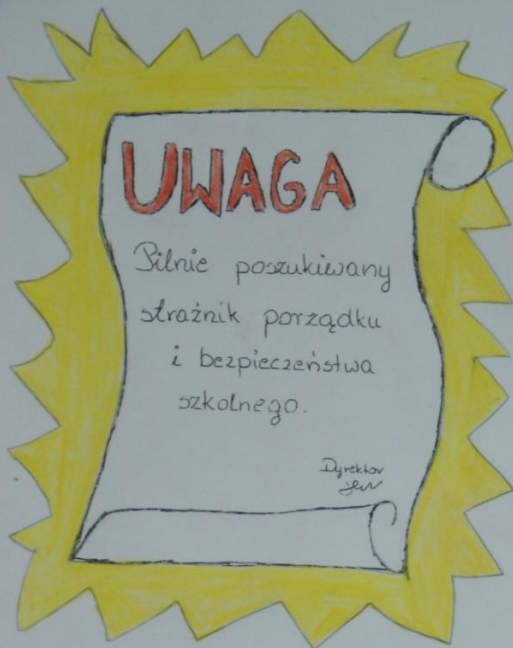 UWAGA
Pilnie poszukiwany
strażnik porządku
i bezpieczeństwa
szkolnego.
Dyrektor